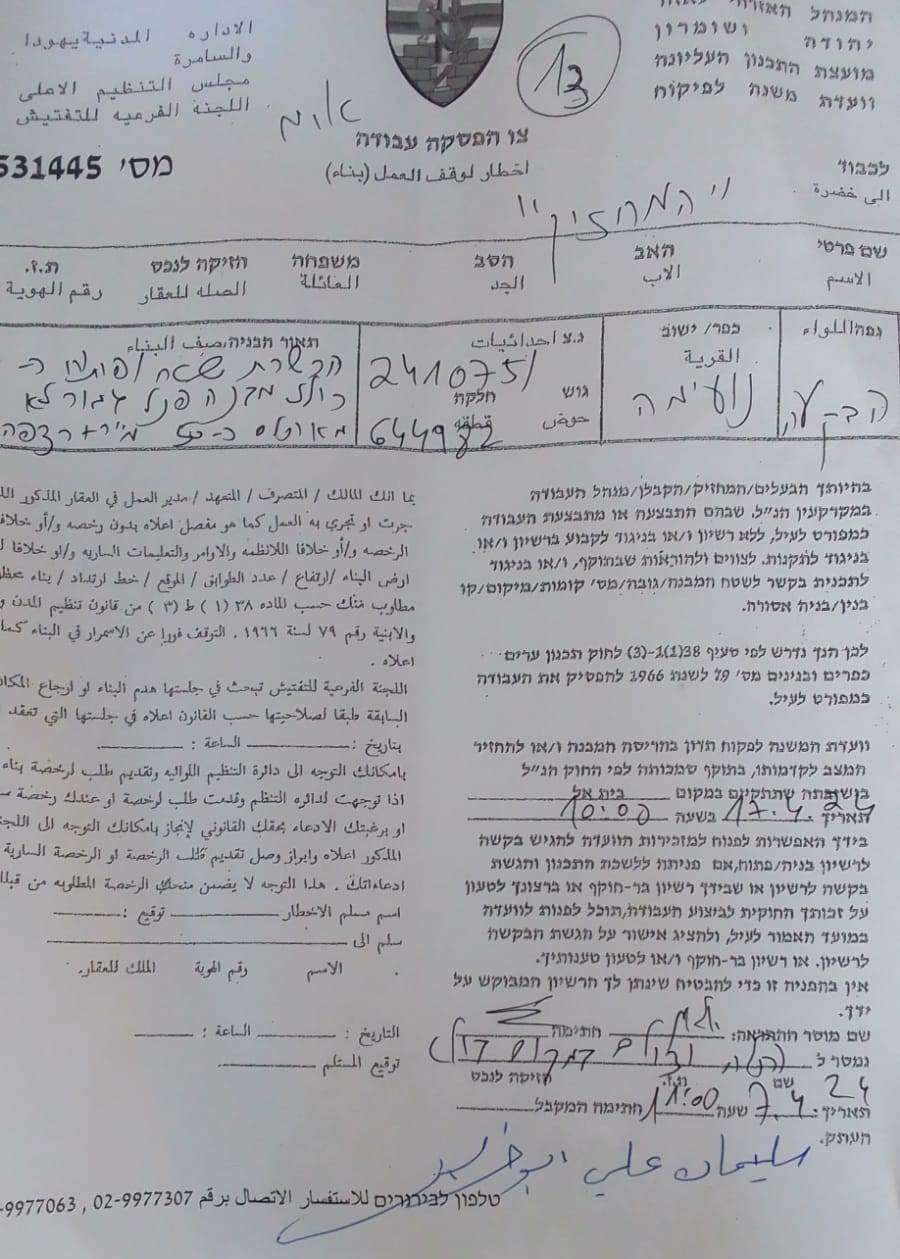 המנהל האזרחי
יהודה ושומרון
מועצת התכנון העליונה
וועדת משנה לפיקוח
الاداره المدنية يهودا
والسامرة
مجلس التنظيم الاعلى
اللجنه الفرعيه للتفتيش
13
צו הפסקה עבודה
اخطار لوقف العمل (بناء)
מס' 531445
לכבוד
الى حضرة
המחזיק
שם פרטי האב הסב משפחה חזיקה לנכס ת.ז.
الاسم الاب الجد العائلة الصله للعقار رقم الهوية
נפה اللواء כפר/ ישוב נ.צ احداثيات תאור הבניה, صف البناء
القرية
הבקעה נועימה 241075/ גוש חלקה הכשרת
حوض قطعه 644972
בחיותך הבעלים/המחזיק/הקבלן/מנהל העבודה
במקרקעין הנ"ל, שבהם התבצעה או מתבצעת העבודה
כמפורט לעיל, ללא רשיון ו/או בניגוד לקבוע ברשיון ו/או
בניגוד לתקנות. לצווים ולהוראות שבתוקף, ו/או בניגוד
לתכנית בקשר לשטח המבנה/גובה/מס' קומות/מיקום/קו
בנין/בניה אסורה.
לכן הנך נדרש לפי סעיף 38(1)1-(3) לחוק תכנון ערים
כפרים ובנינים מס' 79 לשנת 1966 להפסיק את העבודה
כמפורט לעיל.
וועדת המשנה לפקוח תדון בהריסת המבנה ו/או להחזיר
המצב לקדמותו, בתוקף סמכותה לפי החוק הנ"ל
בישיבתה שתתקיים במקום בית אל
תאריך 17.4.24 בשעה 10:00
בידך האפשרות לפנות למזכירות הוועדה להגיש בקשה
לרשיון בניה/פתוח, אם פניתה ללשכת התכנון והגשת
בקשה לרשיון או שבידך רשיון בר-תוקף או ברצונך לטעון
על זכותך החוקית לביצוע העבודה, תוכל לפנות לוועדה
במועד האמור לעיל, ולהציג אישור על הגשת הבקשה
לרשיון. או רשיון בר-תוקף ו/או לטעון טענותיך.
אין בהפניה זו כדי להבטיח שינתן לך הרשיון המבוקש על
ידך.
שם מוסר ההתראה: חתימה
נמסר ל
שם ת.ז. חזיקה לנכס
תאריך 7.4.24 שעה 11:00 חתימה המקבל
העתק.
بما انك المالك / المتصرف / المتعهد / مدير العمل في العقار المذكور
جرت او تجري به العمل كما هو مفصل اعلاه بدون رخصه و/أو خلافا
الرخصه و/أو خلافا للانظمه والاوامر والتعليمات الساريه و/او خلافا
ارض البناء /ارتفاع / عدد الطوابق / الموقع / خط ارتداد / بناء
مطلوب منك حسب الماده ٣٨ (١) ط (٣) من قانون تنظيم المدن
والابنية رقم ٧٩ لسنة ١٩٦٦ . التوقف فورا عن الاسمرار في البناء كما
اعلاه .
اللجنة الفرعية للتفتيش تبحث في جلستها هدم البناء او ارجاع
السابقة طبقا لصلاحيتها حسب القانون اعلاه في جلستها التي تعقد
بتاريخ : الساعة :
بامكانك التوجه الى دائرة التنظيم اللوائيه وتقديم طلب لرخصة بناء
اذا توجهت لدائره التنظم وقدمت طلب لرخصة او عندك رخصة
او برغبتك الادعاء بحقك القانوني لإنجاز بامكانك التوجه الى
المذكور اعلاه وابراز وصل تقديم طلب الرخصة او الرخصة السارية
ادعاءاتك . هذا التوجه لا يضمن منحك الرخصة المطلوبه من
اسم مسلم الاخطار توقيع :
سلم الى
الاسم رقم الهوية الملك للعقار.
التاريخ : الساعة :
توقيع المستلم
سليمان علي
טלפון לבירורים للاستفسار الاتصال برقم 02-9977307 , 9977063-